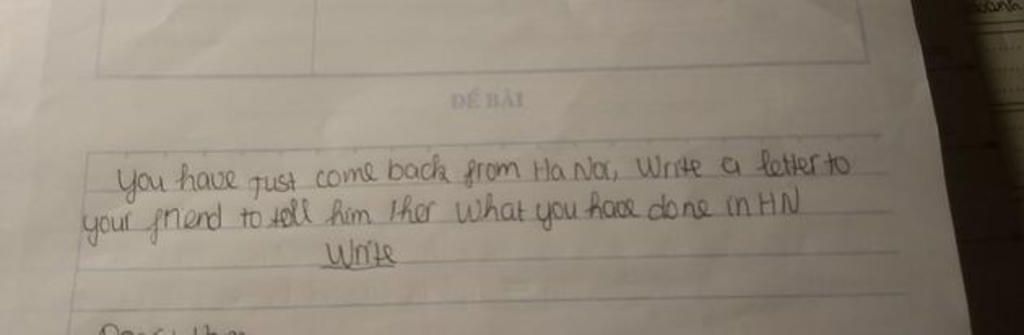 ĐỀ BÀI
You have just come back from Ha Noi, Write a letter to
your friend to tell him /her what you have done in HN
Write